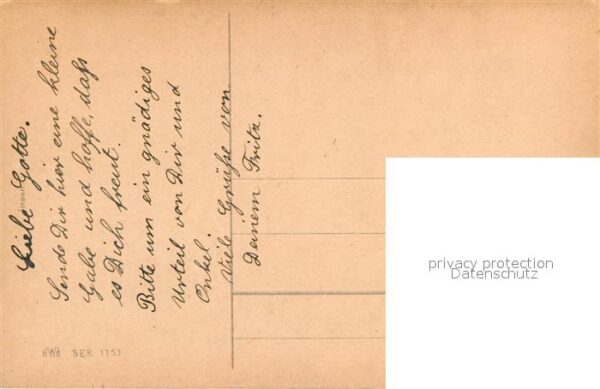 Liebe Gotte.
Sende Dir hier eine kleine
Gabe und hoffe, daß
es Dich freut.
Bitte um ein gnädiges
Urteil von Dir und
Onkel.
Viele Grüße von
Deinem Fritz.
SER. 1753
privacy protection
Datenschutz